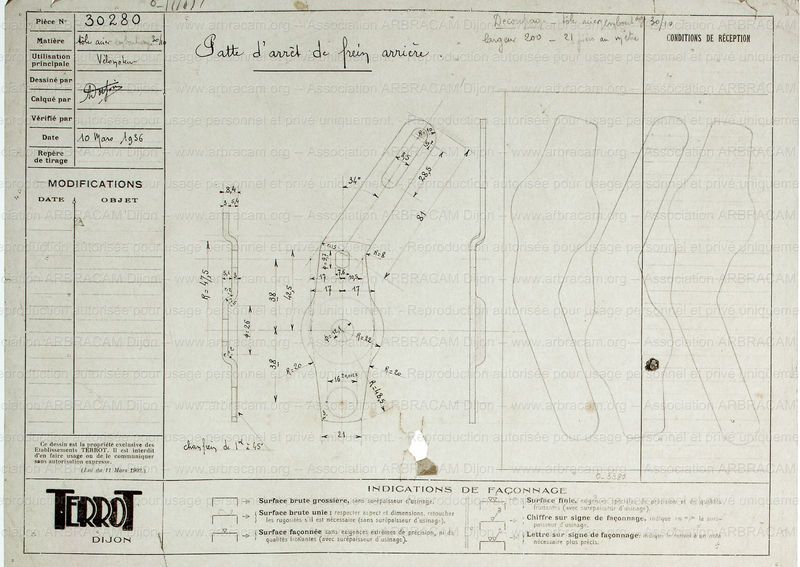 Pièce N° 30280
Matière tôle acier emboutir 30/10
Utilisation principale Vélomoteur
Dessiné par
Calqué par
Vérifié par
Date 10 Mars 1936
Repère de tirage
MODIFICATIONS
DATE OBJET
Patte d'arrêt de frein arrière
Découpage tôle acier 30/10
largeur 200 — 21 au mètre
CONDITIONS DE RÉCEPTION
34°
28,5
81
8,4
3
R=8
7,8
17
17 17
R=47,5
38
42,5
φ=26
R=22
38
R=20
R=20
16
R=48,5
21
chanfrein de 1 à 45°
Ce dessin est la propriété exclusive des
Etablissements TERROT. Il est interdit
d'en faire usage ou de le communiquer
sans autorisation expresse.
(Loi du 11 Mars 1902.)
TERROT
DIJON
INDICATIONS DE FAÇONNAGE
Surface brute grossière, sans surépaisseur d'usinage.
Surface brute unie : respecter aspect et dimensions, retoucher
les rugosités s'il est nécessaire (sans surépaisseur d'usinage).
Surface façonnée sans exigences extrêmes de précision, ni de
qualités frottantes (avec surépaisseur d'usinage).
Surface finie, exigences spéciales de précision et de qualités
frottantes (avec surépaisseur d'usinage).
Chiffre sur signe de façonnage, indique en la surépaisseur d'usinage.
Lettre sur signe de façonnage: indique le renvoi à une note
nécessaire plus précis.
www.arbracam.org -- Association ARBRACAM Dijon -- www.arbracam.org -- Association ARBRACAM Dijon
Reproduction autorisée pour usage personnel et privé uniquement